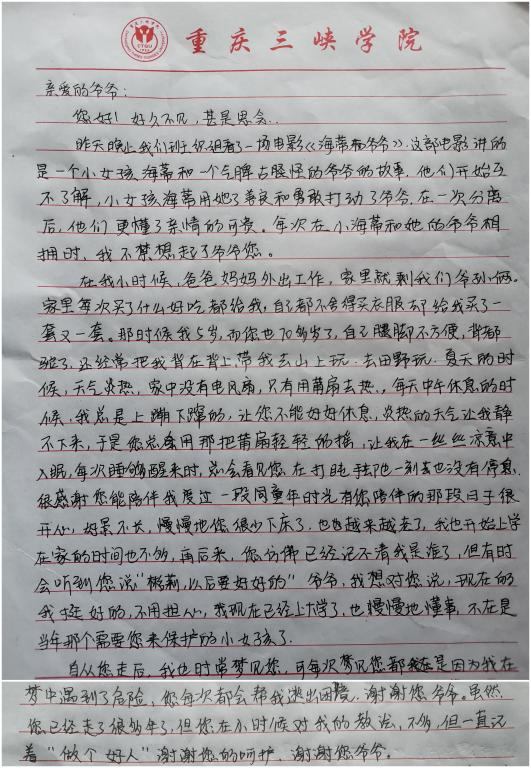 重庆三峡学院
亲爱的爷爷：
您好！好久不见，甚是思念.
昨天晚上我们班级组织看了一场电影《海蒂和爷爷》.这部电影讲的
是一个小女孩海蒂和一个气脾古怪怪的爷爷的故事，他们开始互
不了解，小女孩海蒂用她了善良和勇敢打动了爷爷.在一次分离
后，他们更懂了亲情的可贵。每次在小海蒂和她的爷爷相
拥时，我不禁想起了爷爷您。
在我小时候，爸爸妈妈外出工作，家里就剩我们爷孙俩。
家里每次买了什么好吃都给我，自己都不舍得买衣服却给我买了一
套又一套。那时候我5岁，而您也70多岁了，自己腰脚不方便，背都
驼了，还经常把我背在背上，带我去山上玩.去田野玩.夏天的时
候，天气炎热，家中没有电风扇，只有用蒲扇去热，每天中午休息的时
候，我总是上蹦下蹿的，让您不能好好休息，炎热的天气让我静
不下来，于是您总会用那把蒲扇轻轻的摇，让我在一丝丝凉意中
入眠，每次睡够醒来时，总会看见您在打盹手却一刻也没有停息.
很感谢您能陪伴我度过一段同童年时光有您陪伴的那段日子很
开心，好景不长，慢慢地您很少下床了，也越来越老了，我也开始上学
在家的时间也不多，再后来，您仿佛已经记不清我是谁了，但有时
会听到您说“ 以后要好好的”爷爷，我想对您说，现在的
我挺好的，不用担心，我现在已经上大学了，也慢慢地懂事，不在是
当年那个需要您来保护的小女孩了.
自从您走后，我也时常梦见您，可每次梦见您都是因为我在
梦中遇到了危险，您每次都会帮我逃出困境，谢谢您爷爷.虽然
您已经走了很多年了，但您在小时候对我的教法，不多，但一直记
着“做个好人”谢谢您的呵护，谢谢您爷爷。